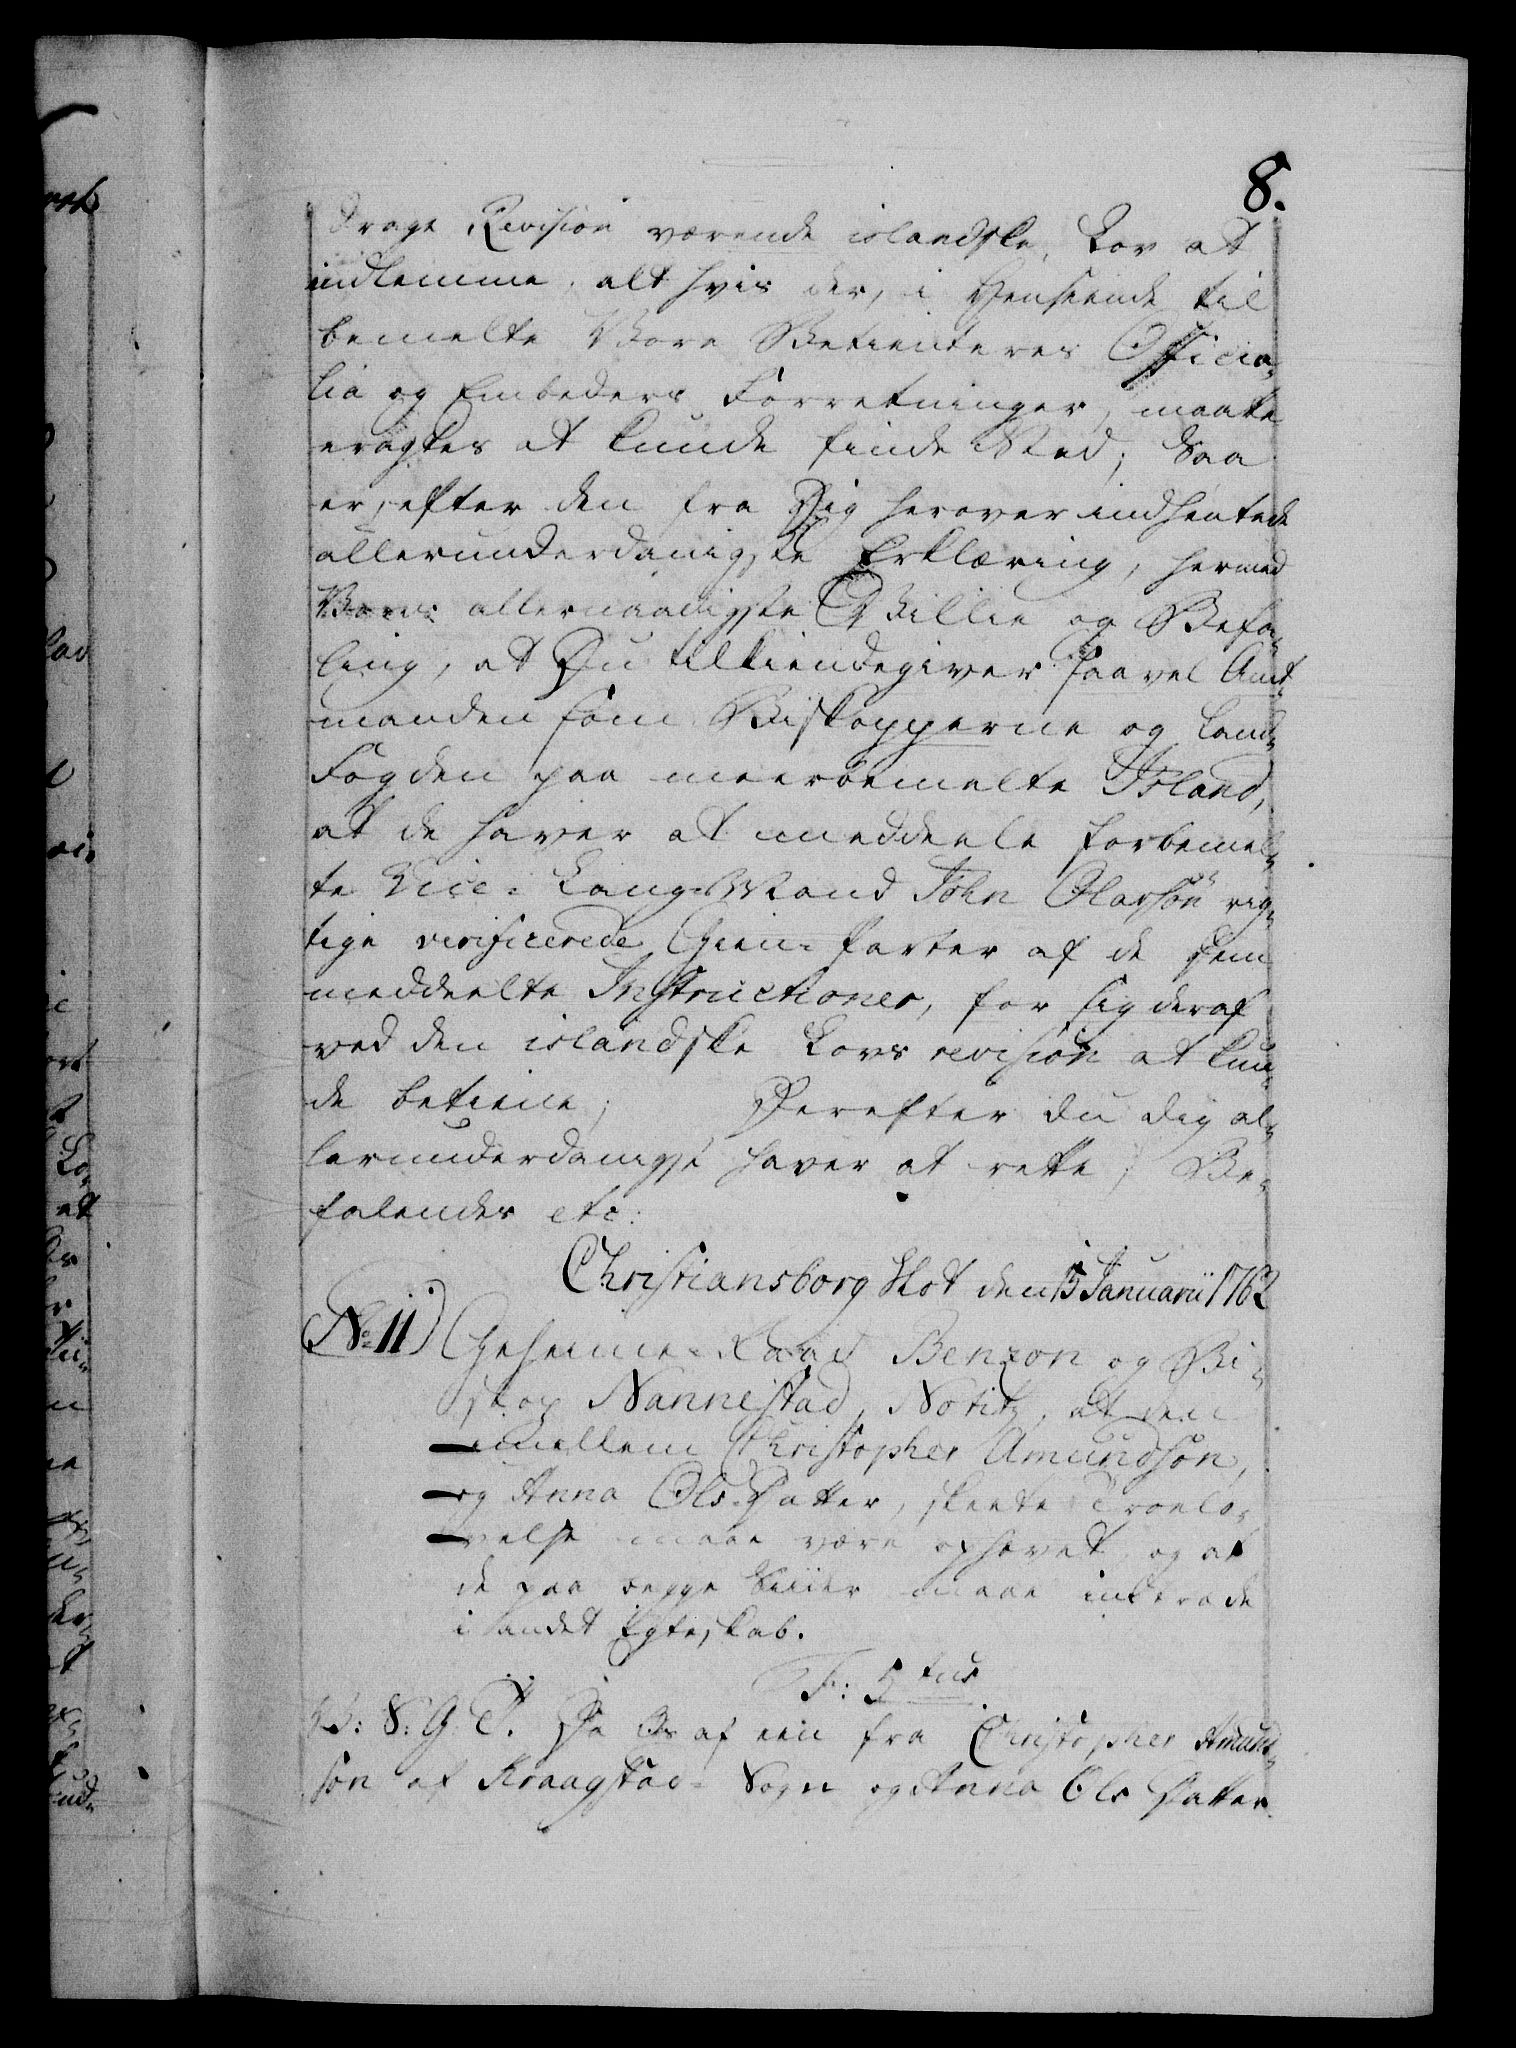 8.
drage Revision værende islandske Lov at
indlemme alt hvis der, i Henseende til
bemelte Vore Betienteres Officia-
lia og Embeders Forretninger, maatte
eragtes at kunde finde Sted; Saa
er, efter den fra Dig herover indhentede
allerunderdanigste Erklæring, hermed
Vores allernaadigste Villie og Befa-
ling, at Du tilkiendegiver saavel Amt-
manden som Biskopperne og Land-
Fogden paa meerbemelte Island,
at de haver at meddeele forbemel-
te Vice-Laug-Mand John Olafsøn rig-
tige verificerede Gien-Parter af de dem
meddeelte Instructioner, for sig deraf
ved den islandske Lovs revision at kun-
de betiene; Derefter du dig al-
lerunderdanigst haver at rette, Be-
falendes etc:
Christiansborg Slot den 15 Januarii 1762
No. 11) Geheime-Raad Benzon og Bi-
skop Nannestad, Notitz, at den
imellem Christopher Amundsøn,
og Anna Ols Datter, skeete Troelo-
velse maae være ophævet, og at
de paa begge Sider maae indtræde
i andet Egteskab.
F: 5tus
V: S: G: T. Da Vi af een fra Christopher Amund-
søn af Kraagstad-Sogn og Anna Ols Datter